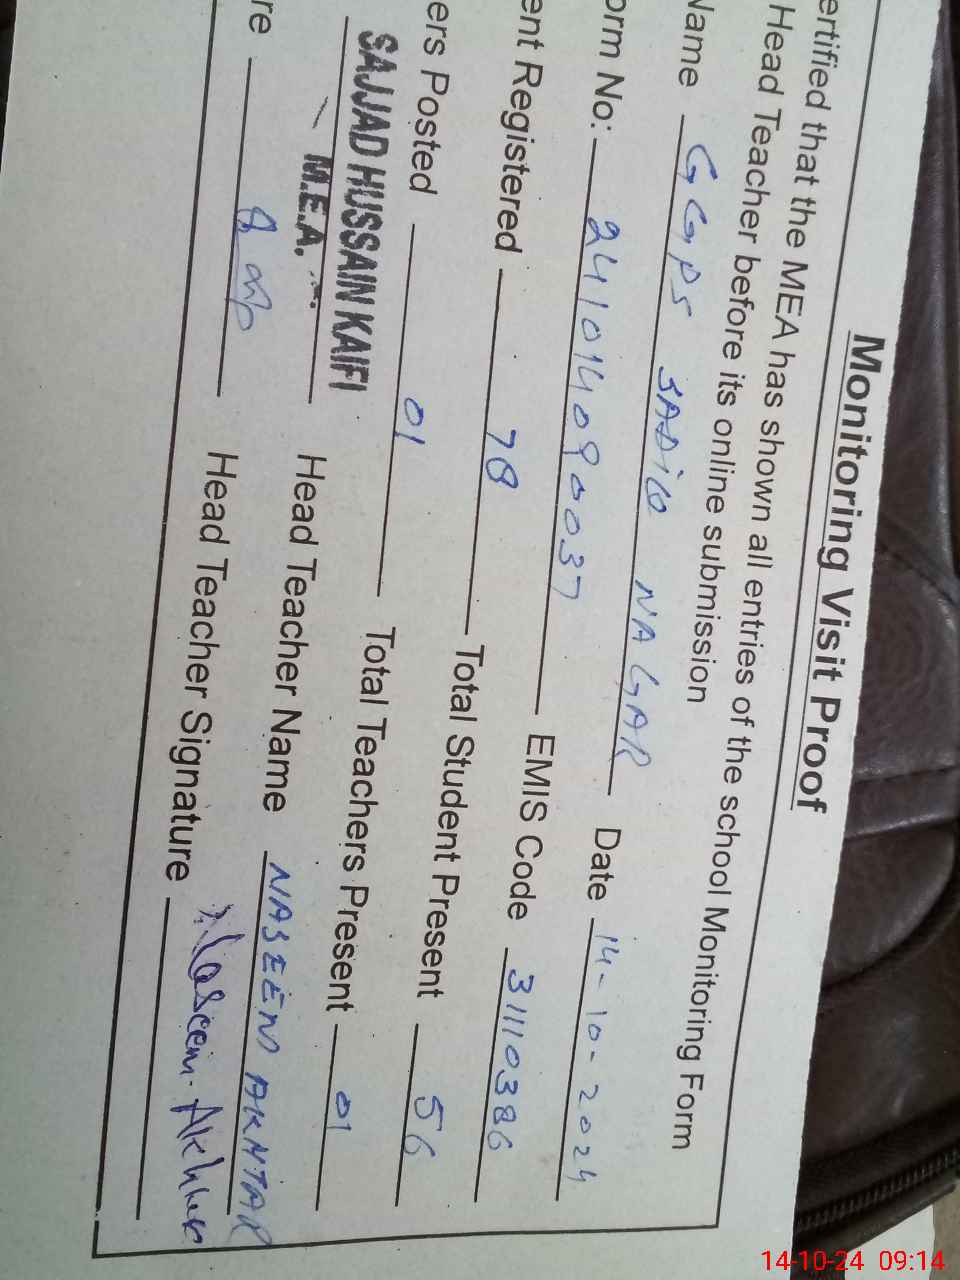 Monitoring Visit Proof
ertified that the MEA has shown all entries of the school Monitoring Form
Head Teacher before its online submission
Name GGPS SADIQ NAGAR Date 14-10-2024
orm No: 241014090037 EMIS Code 31110386
ent Registered 78 Total Student Present 56
ers Posted 01 Total Teachers Present 01
SAJJAD HUSSAIN KAIFI
M.E.A. Head Teacher Name NASEEM AKHTAR
re Head Teacher Signature Naseem Akhter
14-10-24 09:14